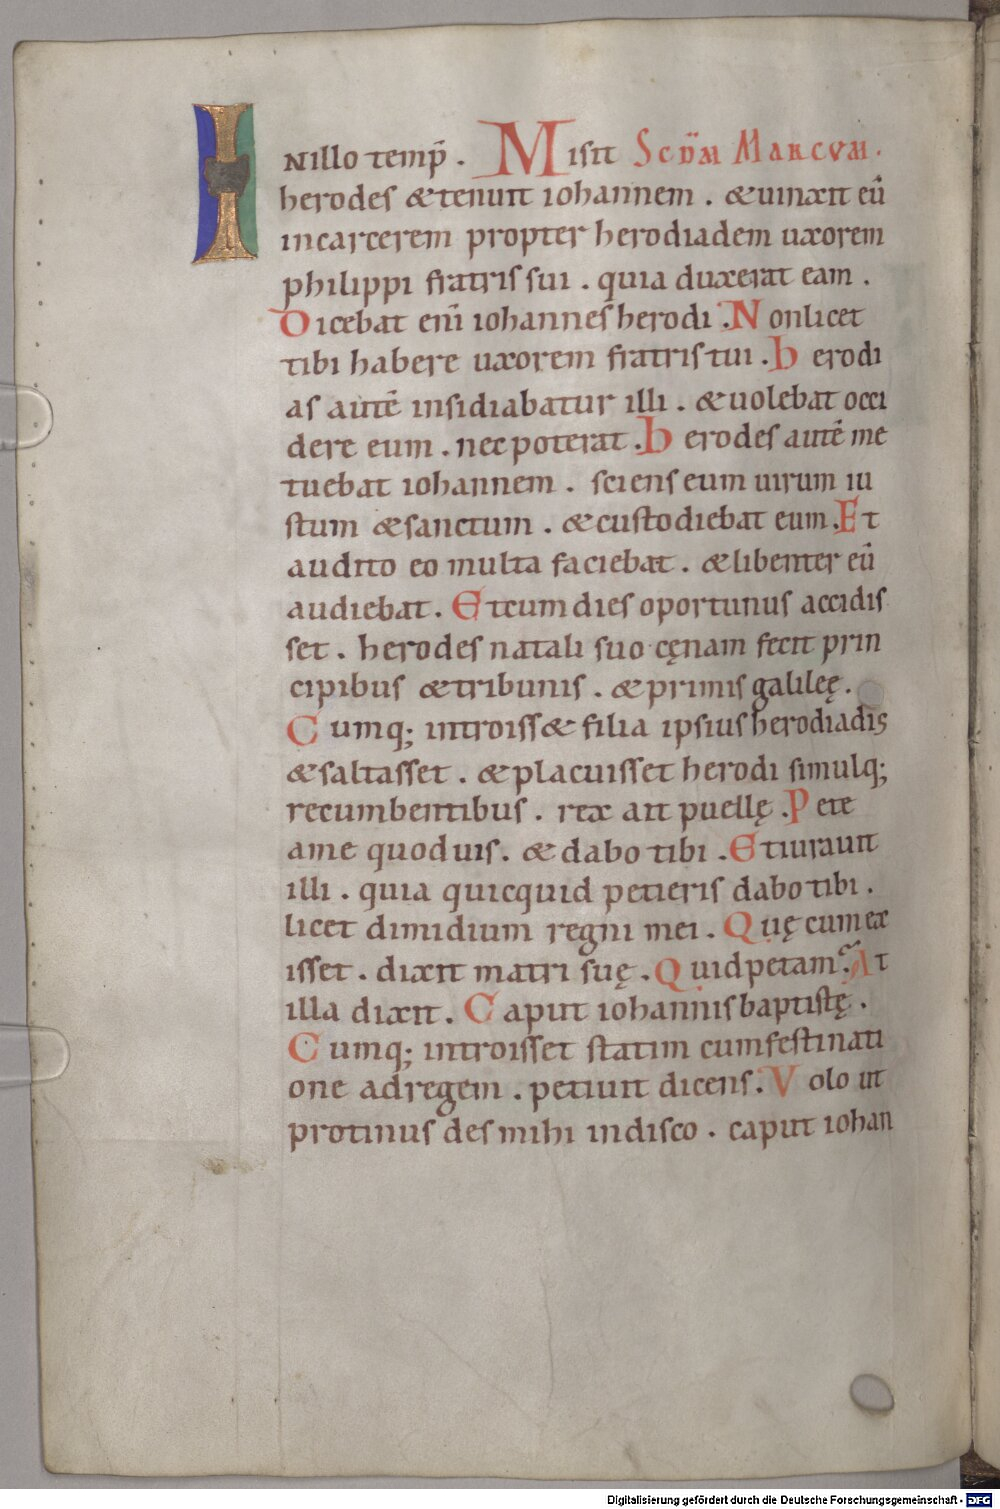 INillo temp̄. Misit Sc̄dm Marcum.
herodes & tenuit iohannem. & uinxit eū
incarcerem propter herodiadem uxorem
philippi fratris sui. quia duxerat eam.
Dicebat eni̅ iohannes herodi. Non licet
tibi habere uxorem fratris tui. herodi
as autē insidiabatur illi. & uolebat occi
dere eum. nec poterat. herodes autē me
tuebat iohannem. sciens eum uirum iu
stum & sanctum. & custodiebat eum. Et
audito eo multa faciebat. & libenter eū
audiebat. Et cum dies oportunus accidis
set. herodes natali suo cęnam fecit prin
cipibus & tribunis. & primis galileę.
Cumq; introiss& filia ipsius herodiadis
& saltasset. & placuisset herodi simulq;
recumbentibus. rex ait puellę. Pete
ame quod uis. & dabo tibi. Et iurauit
illi. quia quicquid petieris dabo tibi.
licet dimidium regni mei. Quę cum ex
isset. dixit matri suę. Quid petam? At
illa dixit. Caput iohannis baptistę.
Cumq; introisset statim cum festinati
one ad regem. petiuit dicens. Volo ut
protinus des mihi indisco. caput iohan
Digitalisierung gefördert durch die Deutsche Forschungsgemeinschaft - DFG